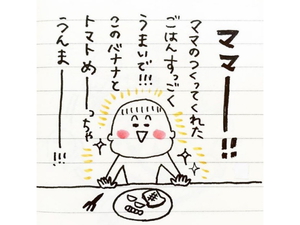 ママーー!!
ママのつくってくれた
ごはんすっごく
うまいで!!!
このバナナと
トマトめーっちゃ
うんまーー!!!